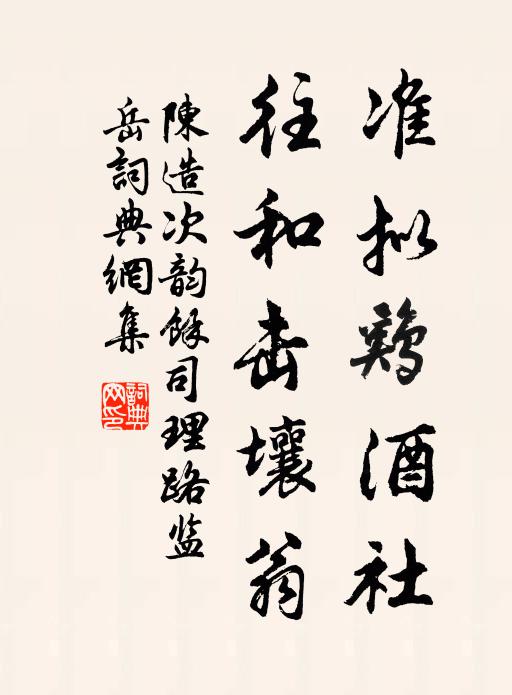 准拟鸡酒社
往和击壤翁
陳造次韵餘司理路监
岳詞典網集
詞典
网印